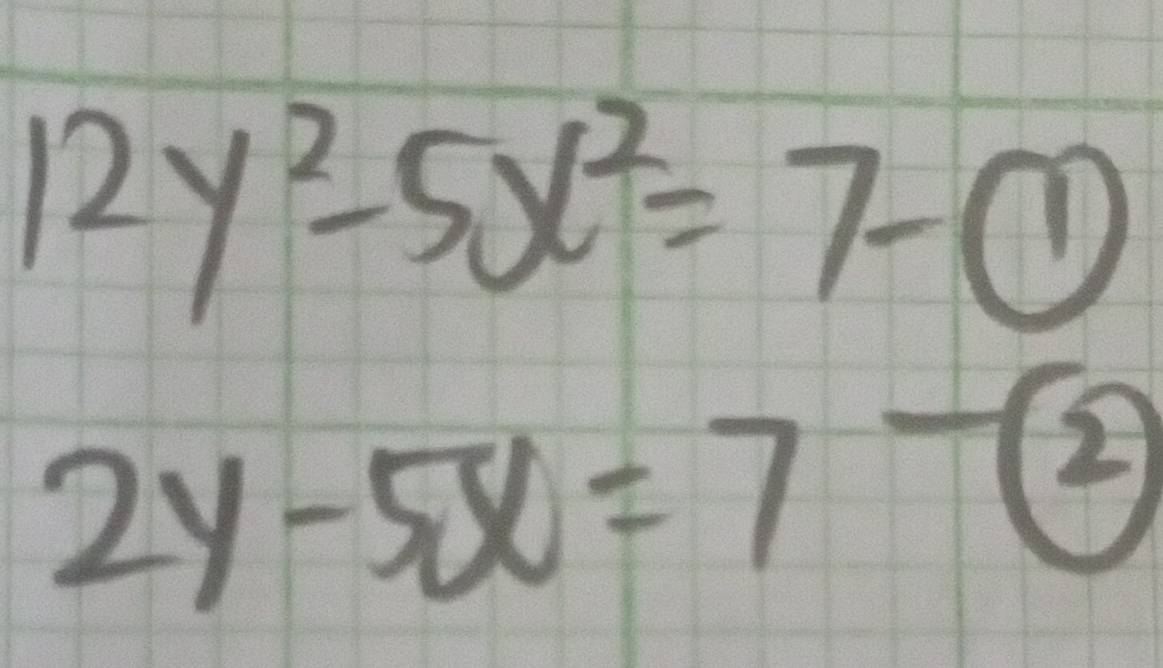 12y² - 5x² = 7 - ①
2y - 5x = 7 - ②